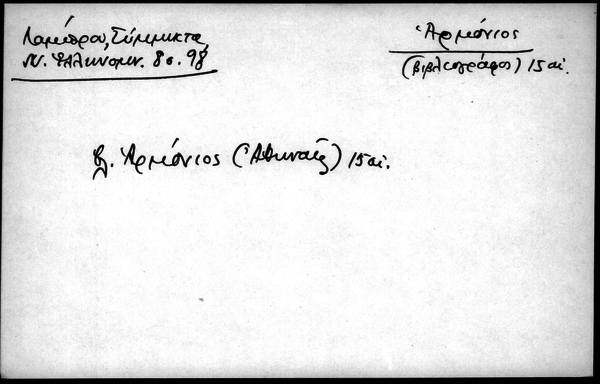 Λαμπρου, Σύμμικτα,
Ν. Ἑλληνομν. 8ο. 98
Ἁρμόνιος
(βιβλιογράφος) 15 αἰ.
βλ. Ἁρμόνιος (Ἀθηναῖος) 15 αἰ.